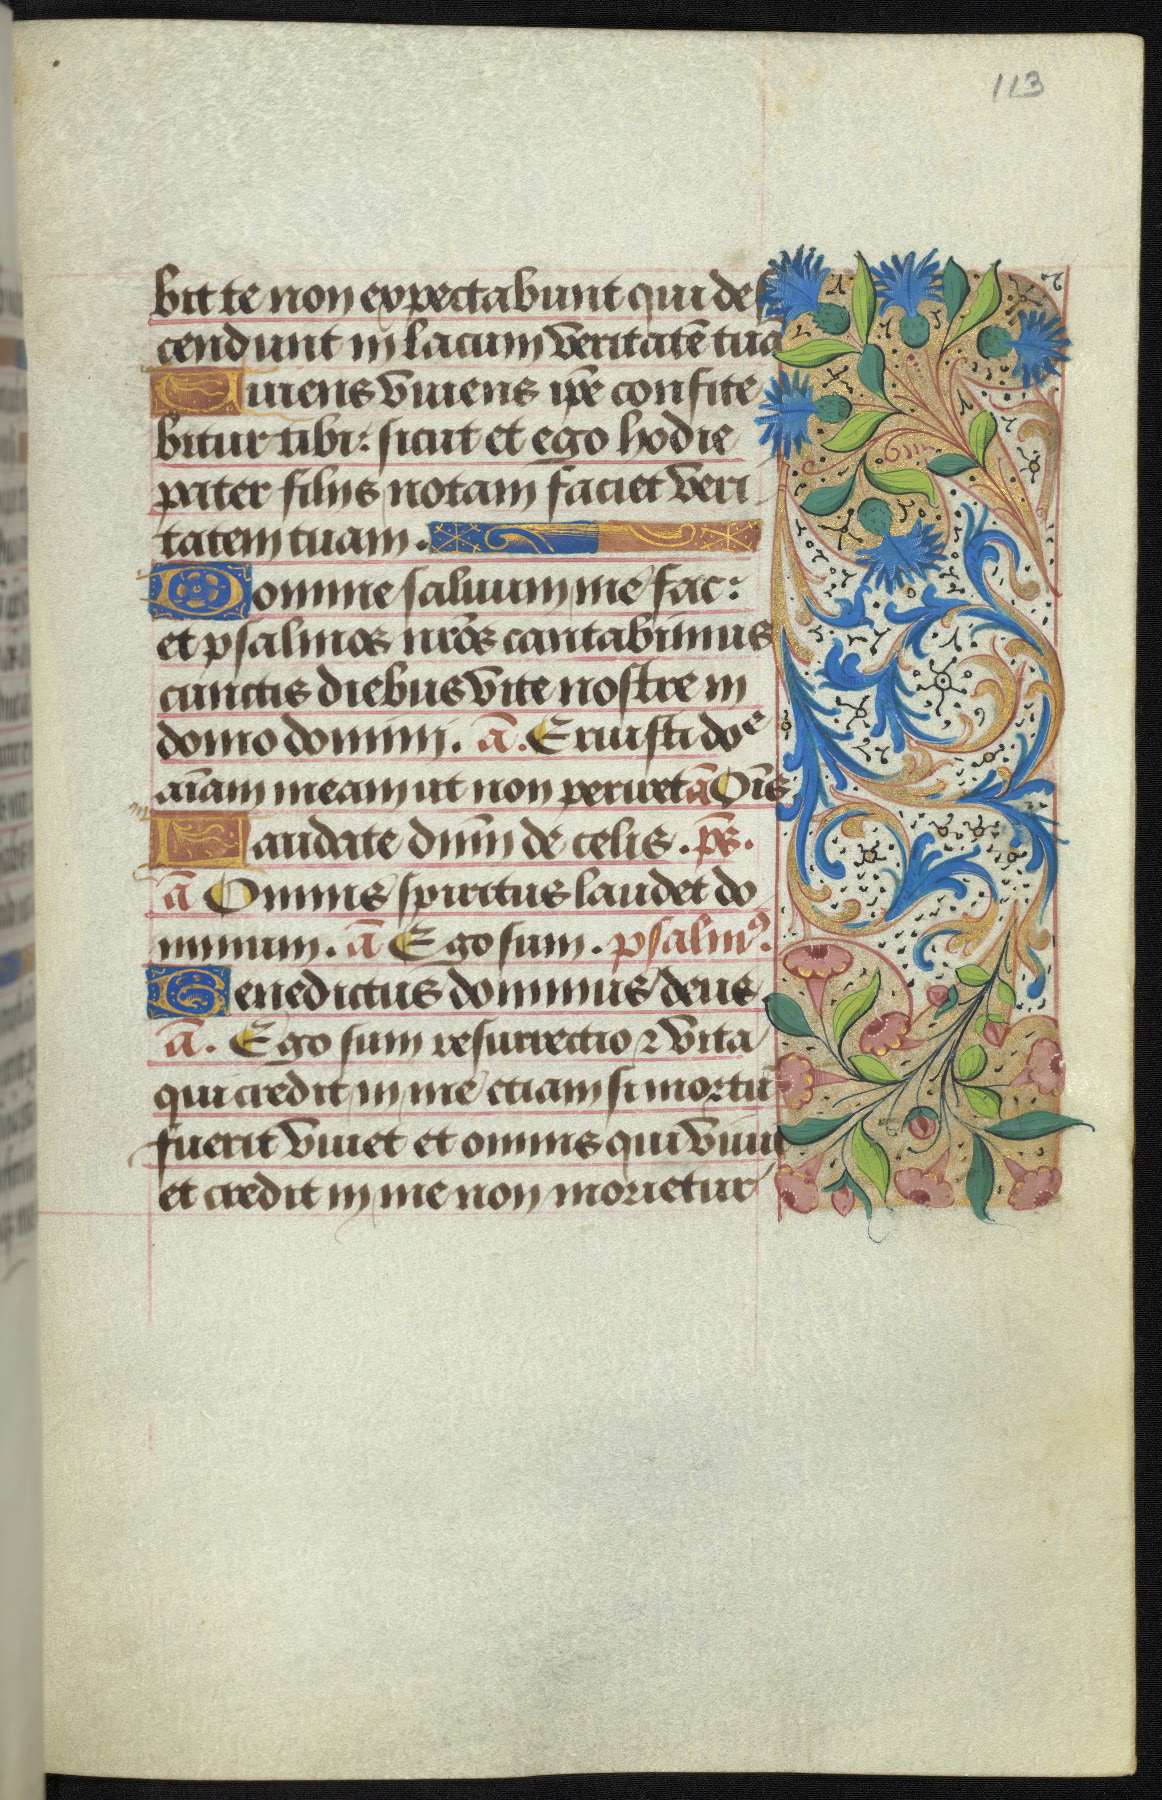 113
bit te non expectabunt qui des
cendunt in lacum veritatē tuā
Viuens viuens ip̄e confite
bitur tibi: sicut et ego hodie
pater filijs notam faciet veri
tatem tuam.
Domine saluum me fac:
et psalmos nr̄os cantabimus
cunctis diebus vite nostre in
domo domini. ā. Eruisti doē
aīam meam ut non periret ā Oīs
Laudate dn̄m de celis. ps̄.
ā Omnis spiritus laudet do
minum. ā Ego sum. psalmꝰ.
Benedictus dominus deus
ā. Ego sum resurrectio ⁊ vita
qui credit in me etiam si mortuꝰ
fuerit viuet et omnis qui viuit
et credit in me non morietur